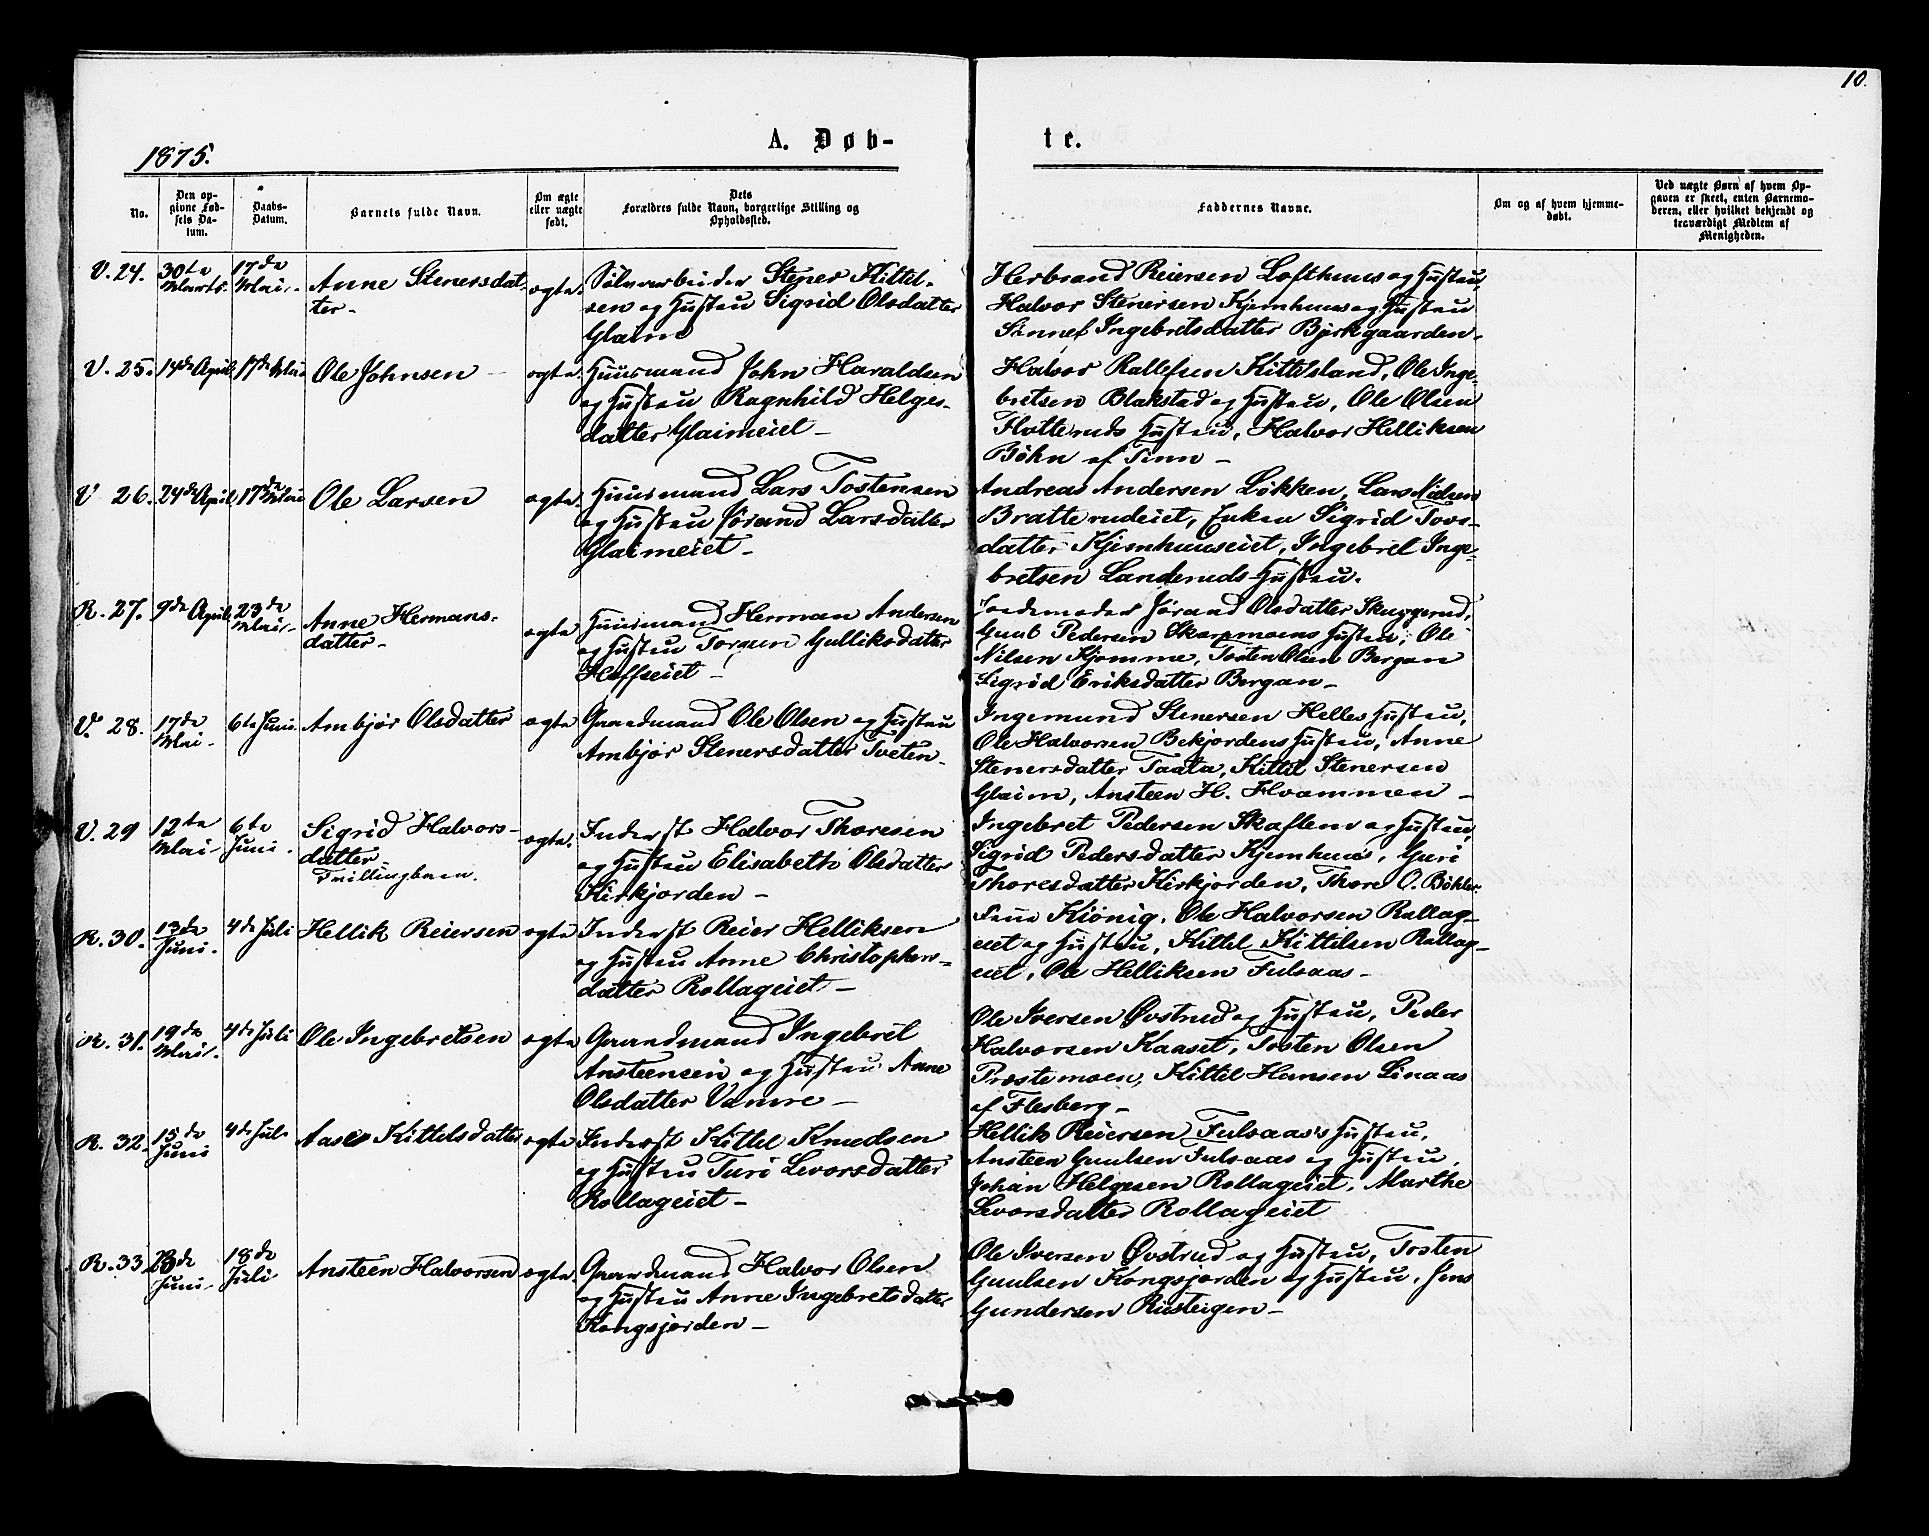 10.
1875.
A. Døb-
te.
No.
Den op-
givne Fød-
sels Da-
tum.
Daabs-
Datum.
Barnets fulde Navn.
Om ægte
eller uægte
født.
Dets
Forældres fulde Navn, borgerlige Stilling og
Opholdssted.
Faddernes Navne.
Om og af hvem hjemme-
døbt.
Ved uægte Børn af hvem Op-
gaven er skeet, enten Barnemo-
deren, eller hvilket bekjendt og
troværdigt Medlem af
Menigheden.
V. 24.
30te
Marts.
17de
Mai.
Anne Stenersdat-
ter-
ægte.
Sølvarbeider Stener Kittil-
sen og Hustru Sigrid Olsdatter
Glaim
Herbrand Reiersen Lofthuus og Hustru,
Halvor Stenersen Kjemhuus og Hustru
Sinnef Ingebretsdatter Bjørkgaarden-
V. 25.
14de April
17de Mai
Ole Johnsen
ægte.
Huusmand John Haraldsen
og Hustru Ragnhild Helges-
datter Glaimeiet-
Halvor Rallefsen Kittilsland, Ole Inge-
bretsen Blakstad og Hustru, Ole Olsen
Flatteruds Hustru, Halvor Helliksen
Bøhn af Tinn-
V 26.
24de April
17de Mai
Ole Larsen
ægte.
Huusmand Lars Tostensen
og Hustru Jørand Larsdatter
Glaimeiet-
Andreas Andersen Løkken, Lars Nielsen
Bratterudeiet, Enken Sigrid Tovs-
datter Kjemhuuseiet, Ingebret Inge-
bretsen Landeruds Hustru.
R. 27.
9de April
23de
Mai-
Anne Hermans-
datter-
ægte
Huusmand Herman Andersen
og Hustru Torgun Gulliksdatter
Hoffseiet-
Jordemoder Jørand Olsdatter Skuggerud,
Guul Pedersen Skarpmoens Hustru, Ole
Nilsen Kjomme, Tosten Olsen Bergan
Sigrid Eriksdatter Bergan-
V. 28.
17de
Mai-
6te Juni
Ambjør Olsdatter
ægte
Gaardmand Ole Olsen og Hustru
Ambjør Stenersdatter Tveten-
Ingemund Stenersen Helles Hustru,
Ole Halvorsen Bekjordens Hustru, Anne
Stenersdatter Taata, Kittil Stenersen
Glaim, Ansteen H. Hvammen-
V. 29
12te
Mai-
6te
Juni.
Sigrid Halvors-
datter
Tvillingbarn.
ægte.
Inderst Halvor Thoresen
og Hustru Elisabeth Olsdatter
Kirkjorden-
Ingebret Pedersen Skaflem og Hustru,
Sigrid Pedersdatter Kjemhuus, Guri
Thoresdatter Kirkjorden, Thore O. Bøhler.
R. 30.
13de
Juni.
4de Juli
Hellik Reiersen
ægte
Inderst Reier Helliksen
og Hustru Anne Christophers-
datter Rollageiet-
Fru Kiönig, Ole Halvorsen Rollag-
eiet og Hustru, Kittel Kittilsen Rollag-
eiet, Ole Helliksen Fulsaas-
R. 31.
19de
Mai.
4de Juli
Ole Ingebretsen
ægte
Gaardmand Ingebret
Ansteensen og Hustru Anne
Olsdatter Vamre-
Ole Iversen Øvstrud og Hustru, Peder
Halvorsen Kaaset, Tosten Olsen
Prestemoen, Kittel Hansen Linaas
af Flesberg-
R. 32.
15de
Juni
4de Juli
Aase Kittelsdatter
ægte
Inderst Kittel Knudsen
og Hustru Turi Levorsdatter
Rollageiet-
Hellik Reiersen Fulsaas's Hustru,
Ansteen Guulsen Fulsaas og Hustru,
Johan Helgesen Rollageiet, Marthe
Levorsdatter Rollageiet
R. 33.
Juni-
18de
Juli
Ansteen Halvorsen
ægte.
Gaardmand Halvor Olsen
og Hustru Anne Ingebretsdatter
Kongsjorden-
Ole Iversen Øvstrud og Hustru, Tosten
Guulsen Kongsjorden og Hustru, Jens
Gundersen Rusteigen-